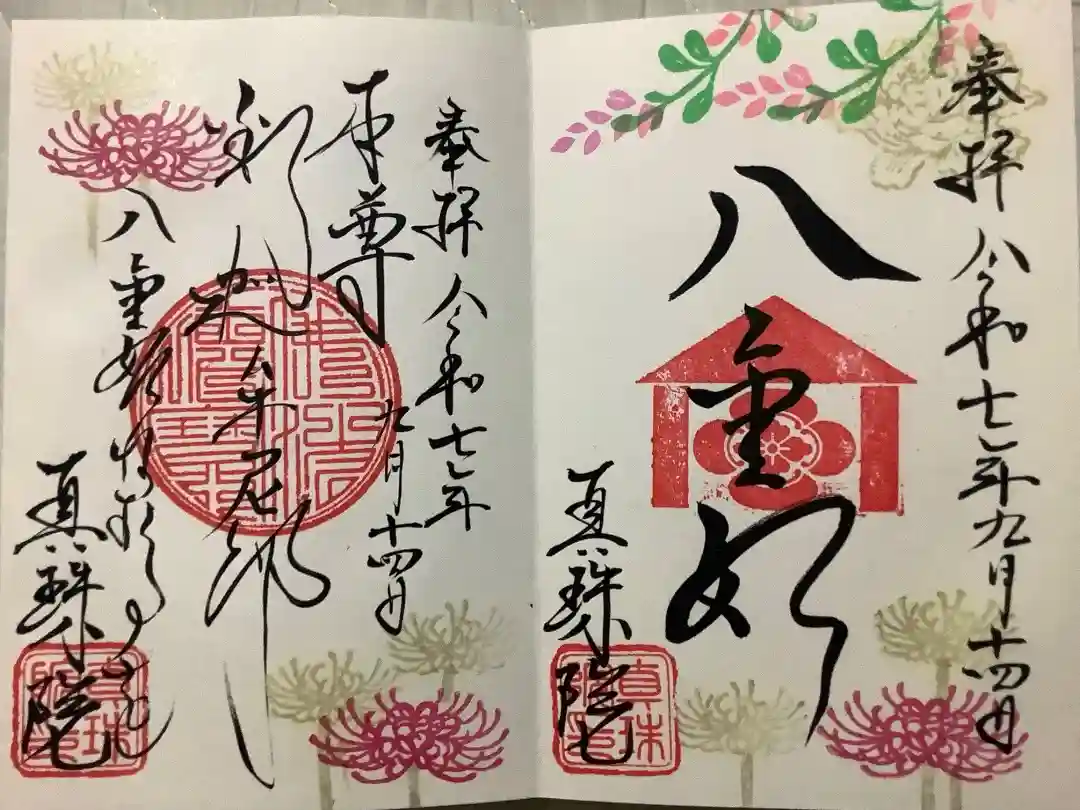 奉拝 令和七年九月十四日
八重姫
真珠院
真珠
奉拝 令和七年
九月十四日
本尊
釈迦牟尼佛
八重姫
真珠院
真珠